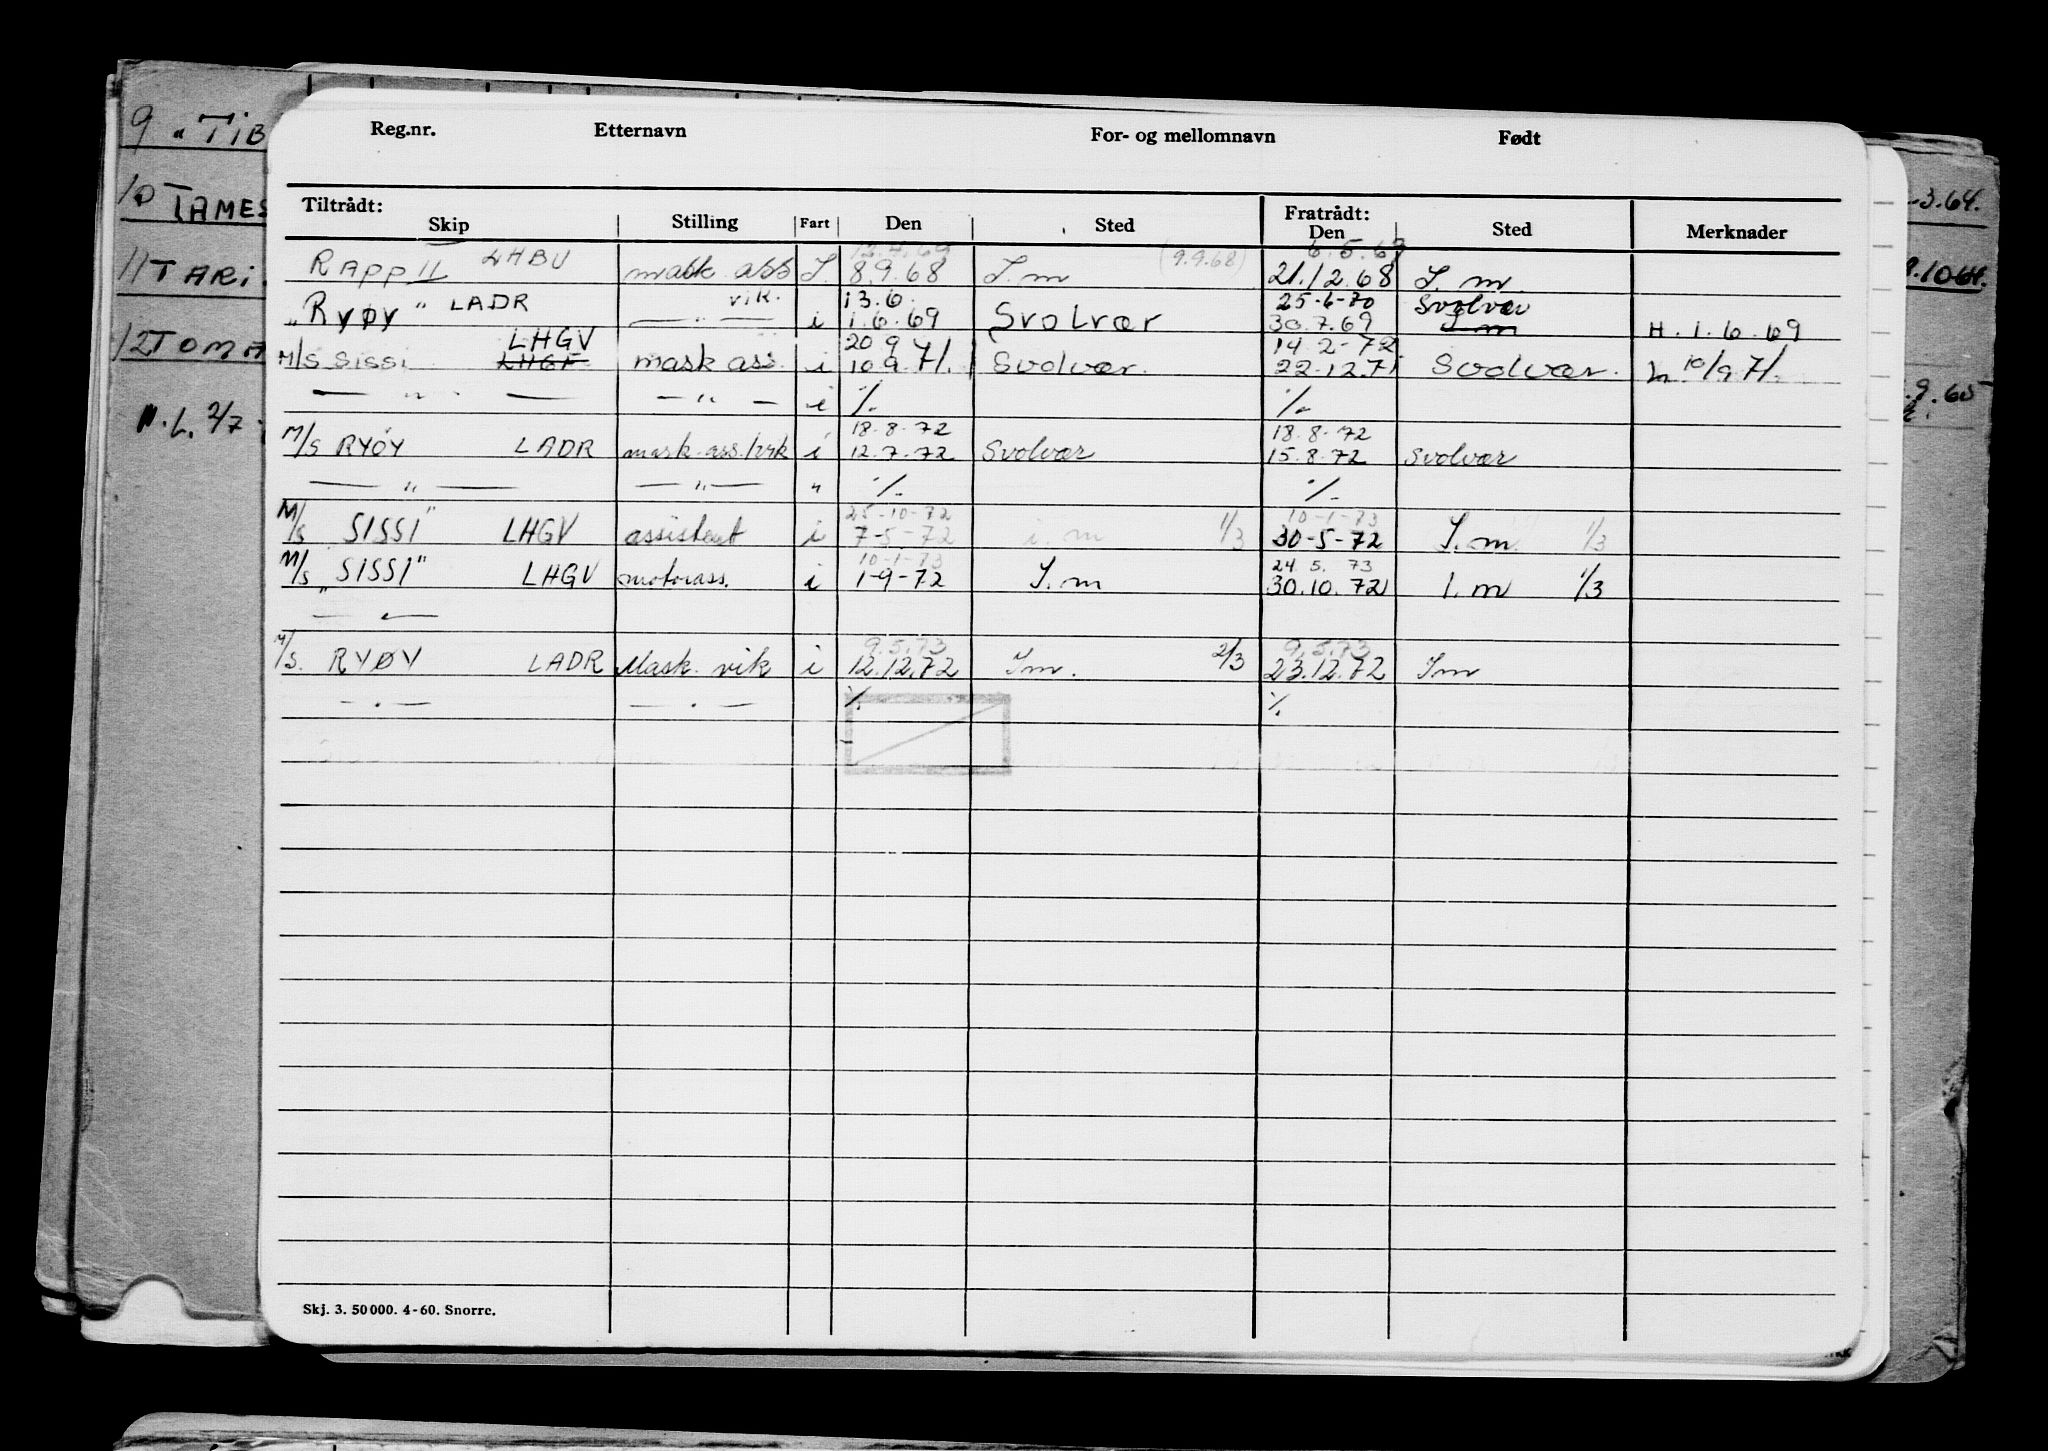 Reg.nr. Etternavn For- og mellomnavn Født
Tiltrådt: Fratrådt:
Skip Stilling Fart Den Sted Den Sted Merknader
9 " TiB
10 TAMES
11 TARi
12 TOMA
N.L. 2/7
3.64.
.1064.
.9.65
13.4.69 (9.9.68) 6.5.69
RAPP II LHBU mask ass I. 8.9.68 I m 21.12.68 I. m.
vik. 13.6. 25-6-70 Svolvær
"RYØY" LADR — " — i 1.6.69 Svolvær 30.7.69 I m H. 1.6.69
LHGV 20 9 14-2-72
M/S SISSI LHGF mask ass. i 10 9.71. Svolvær. 22.12.71 Svolvær. h 10/9 71.
— " — — " — i /. /.
18.8.72 18.8.72
M/S RYÖY LADR mask.ass./vik i 12.7.72 Svolvær 15.8.72 Svolvær
— " — — " — " /. /.
25-10-72 10-1-73
M/S SISSI" LHGV assistent i 7-5-72 i. m 1/3 30-5-72 I. m. 1/3
10-1-73 24 5. 73
M/S "SISSI" LHGV motorass. i 1-9-72 I. m 30.10.72 I. m 1/3
9.5.73 9.5.73
M/S. RYØY LADR Mask. vik i 12.12.72 Im. 2/3 23.12.72 Im
— . — — . — /. /.
Skj. 3. 50 000. 4-60. Snorre.